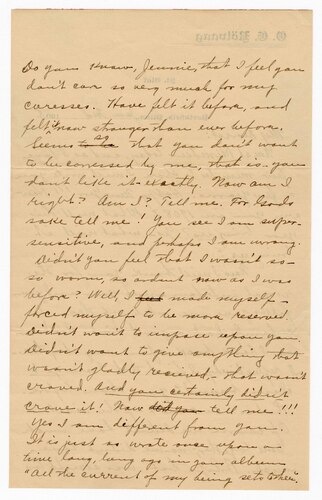 Do you know, Jennie, that I feel you
don't car so very much for my
caresses. Have felt it before, and
felt it now stronger than ever before.
Seems to be so that you don't want
to be caressed by me, that is you
don't like it exactly. Now am I
right? Am I? Tell me. For Gords
sake tell me! You see I am super-
sensitive, and perhaps I am wrong.
Didn't you feel that I wasn't so-
so warm, so ardent now as I was
before? Well, I had made myself-
forced myself to be more reserved.
Didn't want to impose upon you.
Didn't want to give anything that
wasn't gladly received, - that wasn't
craved. And you certainly didn't
crave it! Now did you tell me!!!
Yes I am different from you.
It is just as wrote once upon a
time long, long ago in your album
"All the current of my being sets to thee".